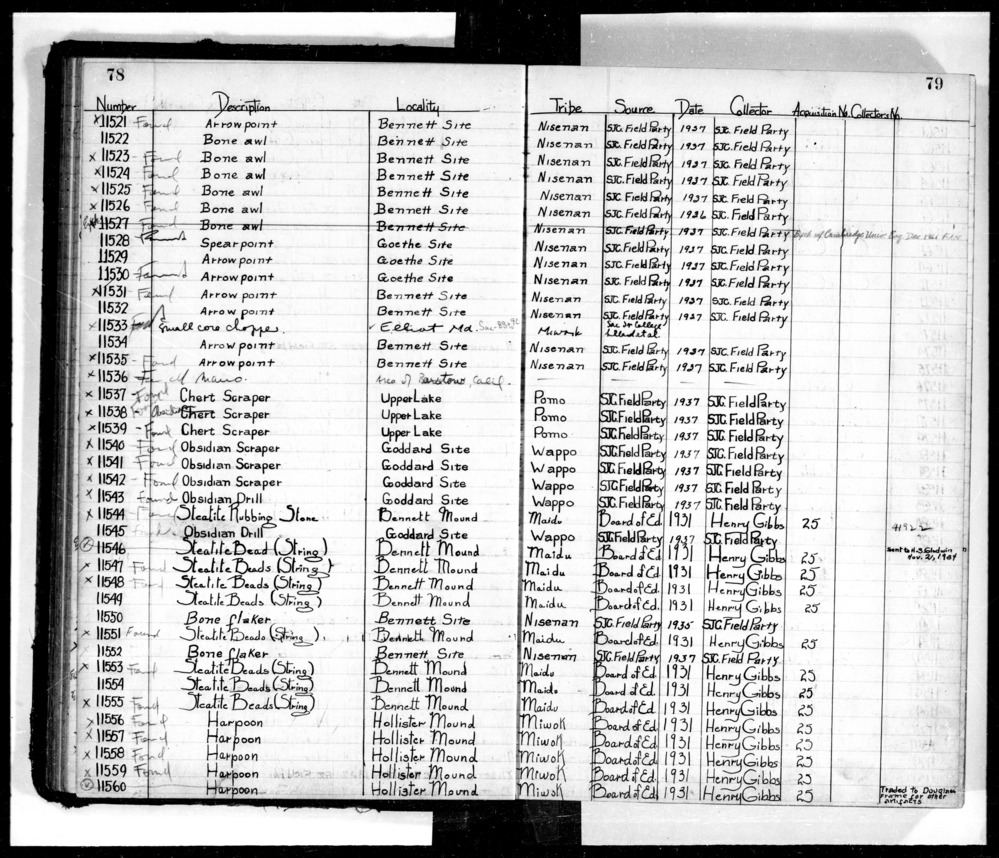 78
79
Number Description Locality Tribe Source Date Collector Acquisition No. Collectors No.
x 11521 Found Arrowpoint Bennett Site Nisenan SJC. Field Party 1937 SJC. Field Party
11522 Bone awl Bennett Site Nisenan SJC. Field Party 1937 SJC. Field Party
x 11523 - Found Bone awl Bennett Site Nisenan SJC. Field Party 1937 SJC. Field Party
x 11524 Found Bone awl Bennett Site Nisenan SJC. Field Party 1937 SJC. Field Party
x 11525 Found Bone awl Bennett Site Nisenan SJC. Field Party 1937 SJC. Field Party
x 11526 Found Bone awl Bennett Site Nisenan SJC. Field Party 1936 SJC. Field Party
11527 Found Bone awl Bennett Site Nisenan SJC. Field Party 1937 SJC. Field Party of Cambridge Univ. Eng. Dec. 1961
11528 Found Spearpoint Goethe Site Nisenan SJC. Field Party 1937 SJC. Field Party
11529 Arrowpoint Goethe Site Nisenan SJC. Field Party 1937 SJC. Field Party
11530 Found Arrowpoint Goethe Site Nisenan SJC. Field Party 1937 SJC. Field Party
x 11531 - Found Arrowpoint Bennett Site Nisenan SJC. Field Party 1937 SJC. Field Party
11532 Arrow point Bennett Site Nisenan SJC. Field Party 1937 SJC. Field Party
x 11533 Found Small core chopper. Elliott Md. Sac- Miwok Sac. Jr. College
11534 Arrowpoint Bennett Site Nisenan SJC. Field Party 1937 SJC. Field Party
x 11535 - Found Arrowpoint Bennett Site Nisenan SJC. Field Party 1937 SJC. Field Party
x 11536 Mano. of Barstow, Calif.
x 11537 Found Chert Scraper Upper Lake Pomo SJC. Field Party 1937 SJC. Field Party
x 11538 Obsidian Chert Scraper Upper Lake Pomo SJC. Field Party 1937 SJC. Field Party
x 11539 - Found Chert Scraper Upper Lake Pomo SJC. Field Party 1937 SJC. Field Party
x 11540 Found Obsidian Scraper Goddard Site Wappo SJC. Field Party 1937 SJC. Field Party
x 11541 Found Obsidian Scraper Goddard Site Wappo SJC. Field Party 1937 SJC. Field Party
x 11542 - Found Obsidian Scraper Goddard Site Wappo SJC. Field Party 1937 SJC. Field Party
x 11543 Found Obsidian Drill Goddard Site Wappo SJC. Field Party 1937 SJC. Field Party
x 11544 Found Steatite Rubbing Stone Bennett Mound Maidu Board of Ed. 1931 Henry Gibbs 25
11545 Obsidian Drill Goddard Site Wappo SJC. Field Party 1937 SJC. Field Party
11546 Steatite Bead (String) Bennett Mound Maidu Board of Ed. 1931 Henry Gibbs 25 Sent to Nov. 21, 1
x 11547 Found Steatite Beads (String) Bennett Mound Maidu Board of Ed 1931 Henry Gibbs 25
x 11548 Found Steatite Beads (String) Bennett Mound Maidu Board of Ed. 1931 Henry Gibbs 25
11549 Steatite Beads (String) Bennett Mound Maidu Board of Ed. 1931 Henry Gibbs 25
11550 Bone flaker Bennett Site Nisenan SJC. Field Party 1935 SJC. Field Party
x 11551 Found Steatite Beads (String) Bennett Mound Maidu Board of Ed. 1931 Henry Gibbs 25
11552 Bone flaker Bennett Site Nisenan SJC. Field Party 1937 SJC. Field Party
x 11553 Found Steatite Beads (String) Bennett Mound Maidu Board of Ed. 1931 Henry Gibbs 25
11554 Steatite Beads (String) Bennett Mound Maidu Board of Ed. 1931 Henry Gibbs 25
x 11555 Found Steatite Beads (String) Bennett Mound Maidu Board of Ed. 1931 Henry Gibbs 25
x 11556 Found Harpoon Hollister Mound Miwok Board of Ed. 1931 Henry Gibbs 25
x 11557 Found Harpoon Hollister Mound Miwok Board of Ed. 1931 Henry Gibbs 25
x 11558 Found Harpoon Hollister Mound Miwok Board of Ed. 1931 Henry Gibbs 25
x 11559 Found Harpoon Hollister Mound Miwok Board of Ed. 1931 Henry Gibbs 25
11560 Harpoon Hollister Mound Miwok Board of Ed. 1931 Henry Gibbs 25 Traded to Douglas
Frame for other
artifacts